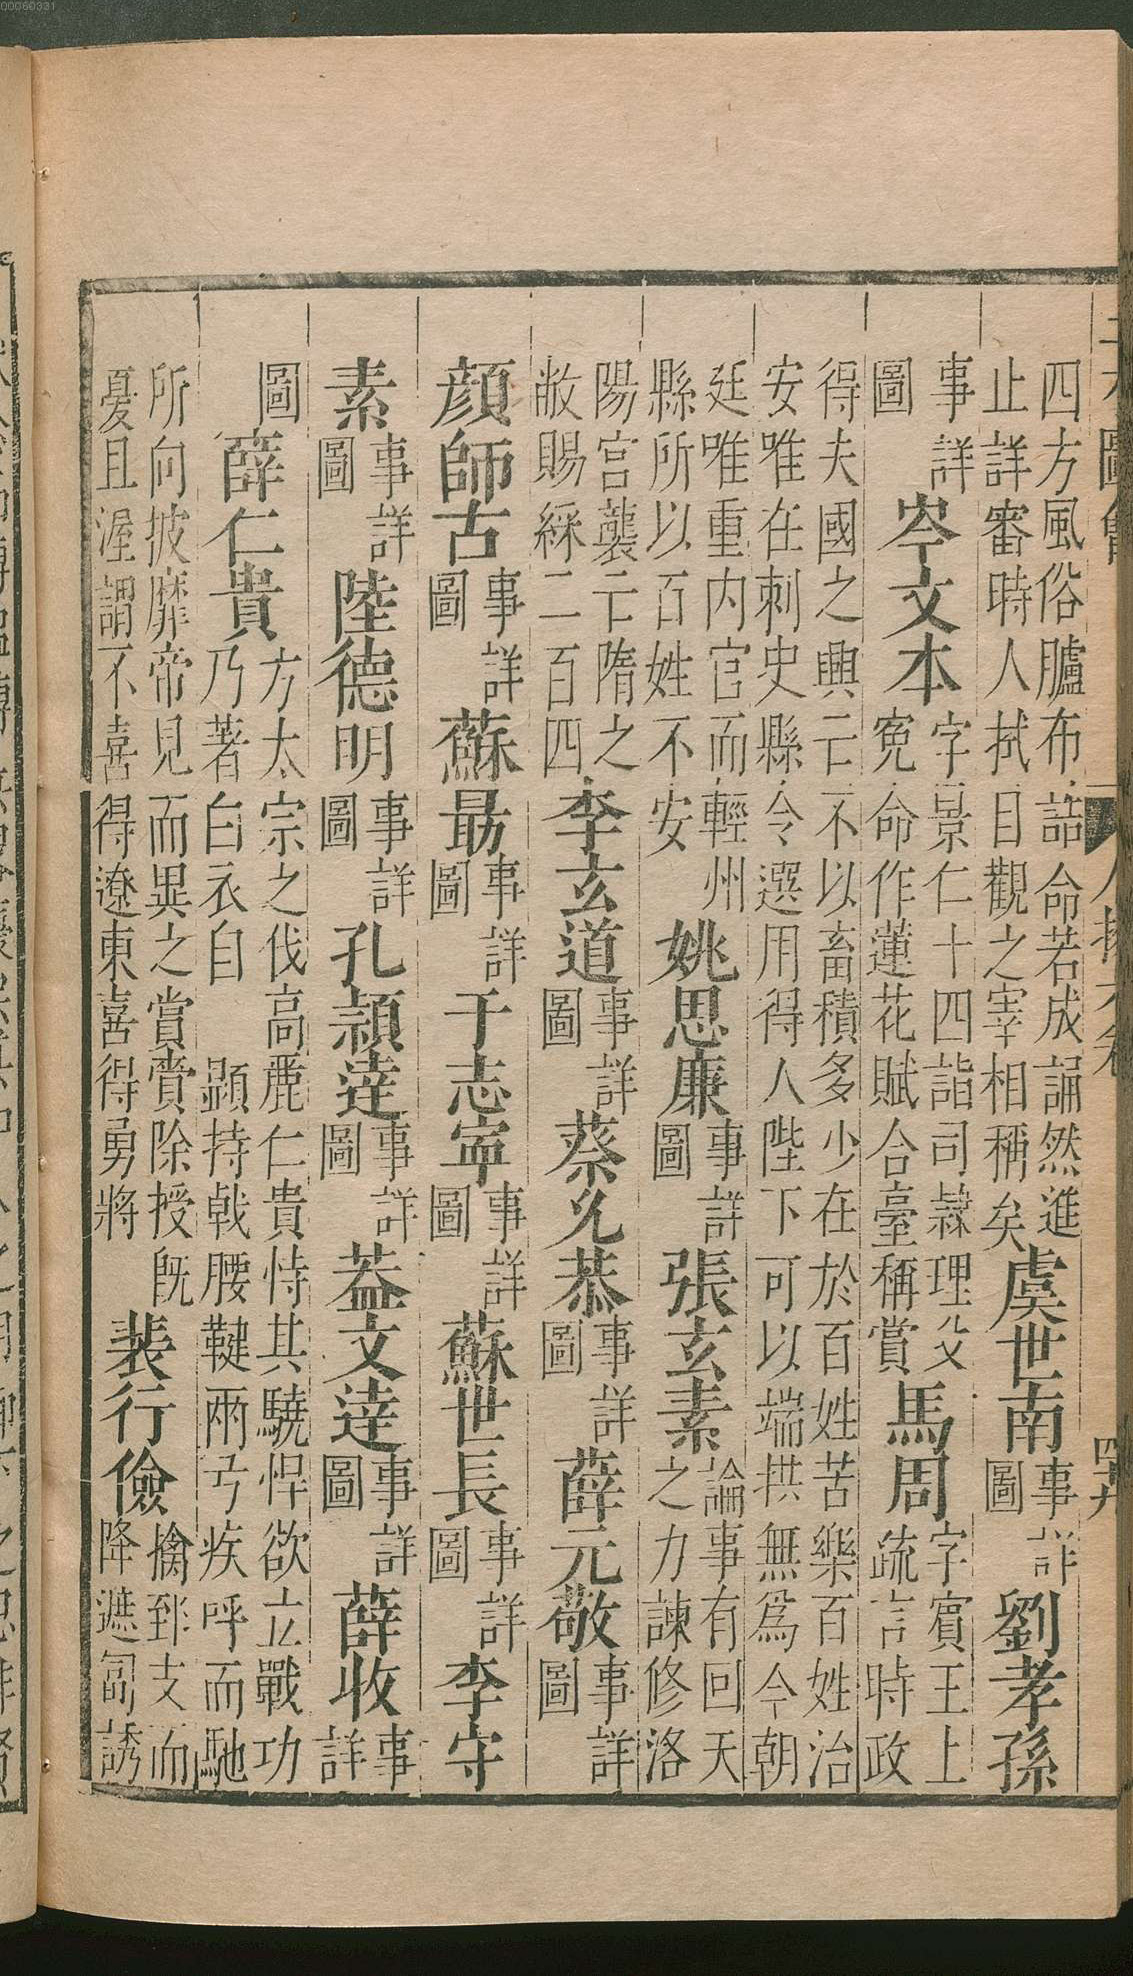 四方風俗臚布詰命若成誦然進
止詳審時人拭目觀之宰相稱矣
虞世南
事詳
圖
劉孝孫
事詳
圖
岑文本
字景仁十四詣司隸理父
寃命作蓮花賦合臺稱賞
馬周
字賓王上
疏言時政
得夫國之興亡不以畜積多少在於百姓苦樂百姓治
安唯在刺史縣令選用得人陛下可以端拱無爲今朝
廷唯重内官而輕州
縣所以百姓不安
姚思廉
事詳
圖
張玄素
論事有回天
之力諫修洛
陽宮襲亡隋之
敝賜綵二百四
李玄道
事詳
圖
蔡允恭
事詳
圖
薛元敬
事詳
圖
顔師古
事詳
圖
蘇勗
事詳
圖
于志寧
事詳
圖
蘇世長
事詳
圖
李守
素
事詳
圖
陸德明
事詳
圖
孔頴達
事詳
圖
葢文達
事詳
圖
薛收
事
詳
圖
薛仁貴
方太宗之伐高麗仁貴恃其驍悍欲立戰功
乃著白衣自顯持戟腰鞬兩弓疾呼而馳
所向披靡帝見而異之賞賚除授既
憂且渥謂不喜得遼東喜得勇將
裴行儉
擒郅支而
降遮匐誘
00060331